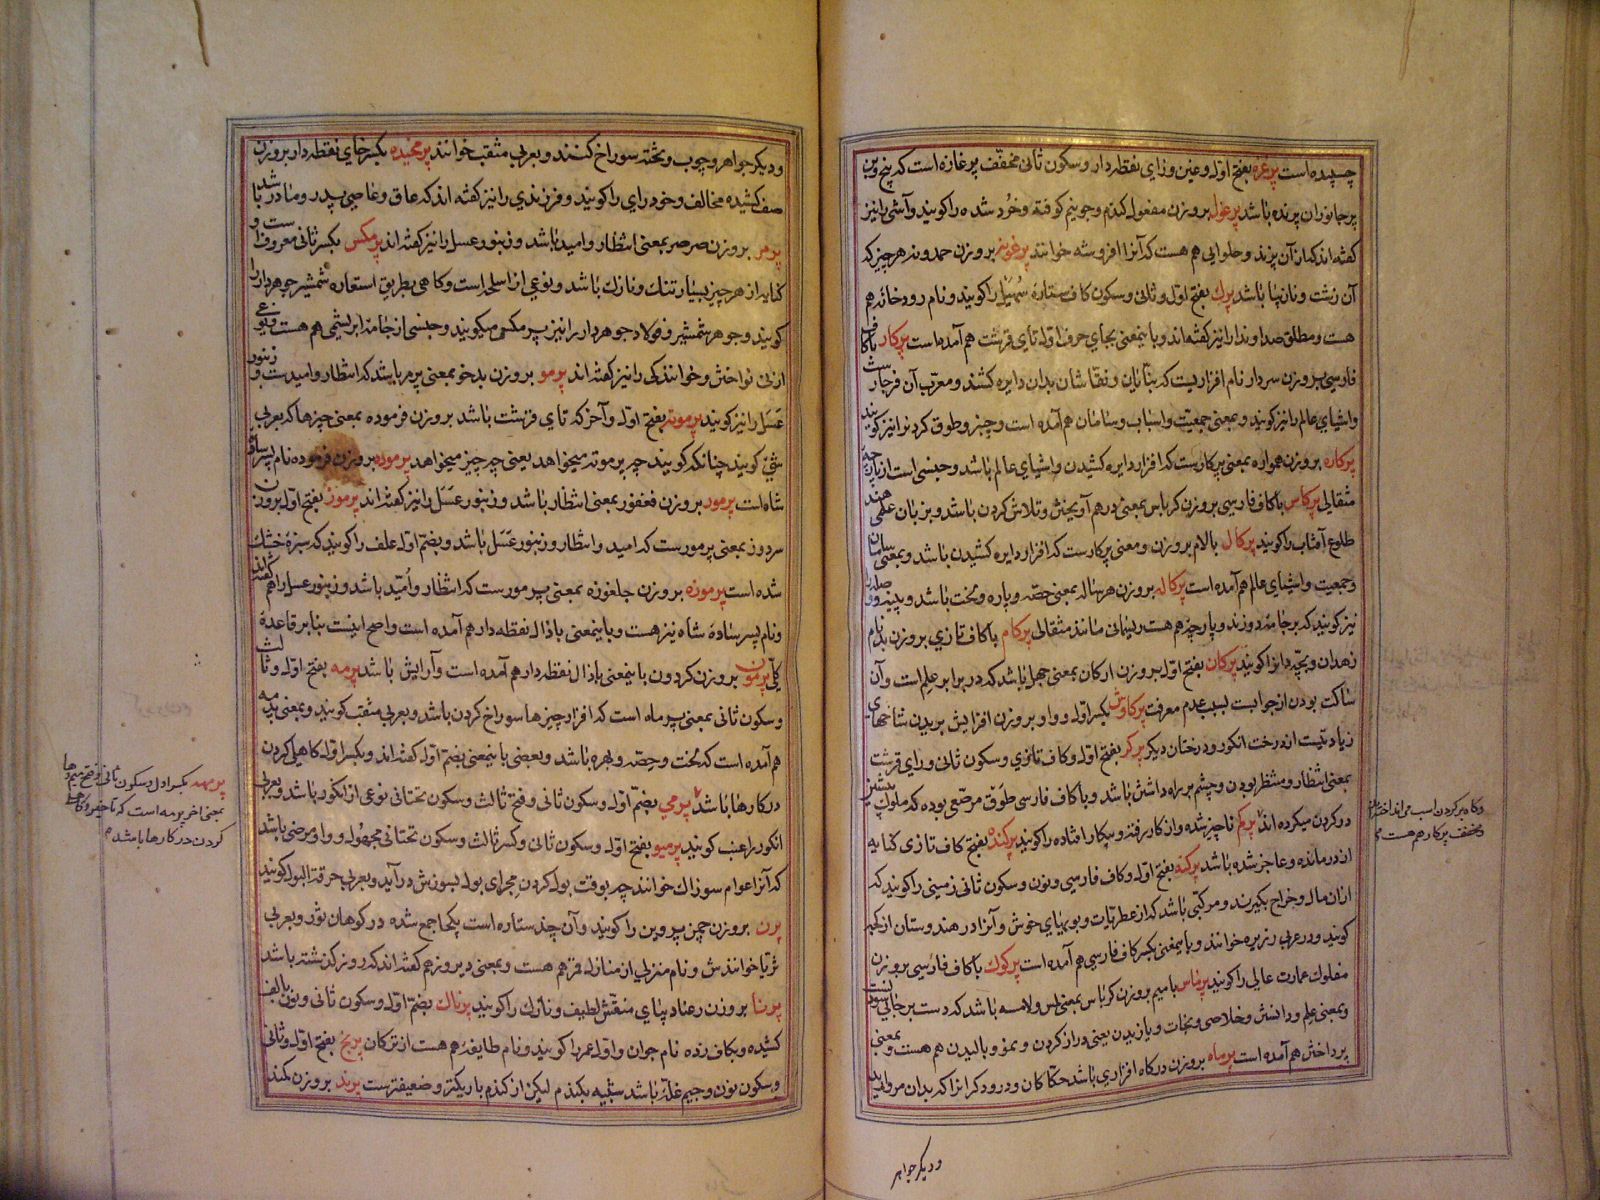 چسپیده است پرغزه بفتح اول و غین و زای نقطه دار و سکون ثانی مخفف پرغازه است که بیخ و بن
پر جانوران پرنده باشد پرغول بر وزن مفعول گندم و جو نیم کوفته و خورد شده را کویند و آشی را نیز
کفته اند که از آن پزند و حلوایی هم هست که آنرا افروشه خوانند پرغونه بر وزن حمدونه هر چیز که
آن زشت و نازیبا باشد پرک بفتح اول و ثانی و سکون کاف ستاره سهیل را کویند و نام رودخانه هم
هست و مطلق صدا و ندا را نیز کفته اند و باینمعنی بجای حرف اول تای قرشت هم آمده است پرکار با کاف
فارسی بر وزن سردار نام افزاریست که بنایان و نقاشان بدان دایره کشند و معرب آن فرجار است
و اشیای عالم را نیز کویند و بمعنی جمعیت و اسباب و سامان هم آمده است و چنبر و طوق کردنرا نیز کویند
پرکاره بر وزن همواره بمعنی پرکارست که افزار دایره کشیدن و اشیای عالم باشد و جنسی است از پارچه
مثقالی پرکاس با کاف فارسی بر وزن کرباس بمعنی درهم آویختن و تلاش کردن باشد و بزبان علمی هند
طلوع آفتاب را کویند پرکال با لام بر وزن و معنی پرکارست که افزار دایره کشیدن باشد و بمعنی سامان
و جمعیت و اشیای عالم هم آمده است پرکاله بر وزن هرساله بمعنی حصه و پاره و لخت باشد و پینه و وصله را
نیز کویند که بر جامه دوزند و پارچه هم هست ریسمانی مانند مثقالی پرکام با کاف تازی بر وزن بدنام
زهدان و بچه دانرا کویند پرکان بفتح اول بر وزن ارکان بمعنی جهل باشد که در برابر علم است و آن
ساکت بودن از جوابست بسبب عدم معرفت پرکاوش بکسر اول و واو بر وزن افزایش بریدن شاخهای
زیادتیست از درخت انکور و درختان دیکر پرکر بفتح اول و کاف تازی و سکون ثانی و رای قرشت
بمعنی انتظار و منتظر بودن و چشم براه داشتن باشد و با کاف فارسی طوق مرصعی بوده که ملوک پیشین
در کردن میکرده اند پرکم ناچیز شده و از کار رفته و بیکار افتاده را کویند پرکنده بفتح کاف تازی کنایه
از درمانده و عاجز شده باشد پرکنه بفتح اول و کاف فارسی و نون و سکون ثانی زمینی را کویند که
از آن مال و خراج بکیرند و مرکبی باشد که از عطریات و بویهای خوش و آنرا در هندوستان ارکجه
کویند و در عربی ذریره خوانند و باینمعنی بکسر کاف فارسی هم آمده است پرکوک با کاف فارسی بر وزن
مفلوک عمارت عالی را کویند پرماس با میم بر وزن کرباس بمعنی لمس و لامسه باشد که دست بر جایی سودنست
و بمعنی علم و دانش و خلاصی و نجات و یازیدن یعنی دراز کردن و نمو و بالیدن هم هست و بمعنی
پرداختن هم آمده است پرماه بر وزن درکاه افزاری باشد حکاکان و درودکرانرا که بدان مروارید
وکاه پر کردن اسب می انداختران
و مخفف پرکار هم هست
و دیکر جواهر
و دیکر جواهر و چوب و تخته سوراخ کنند و بعربی مثقب خوانند پرمخیده بکسر خای نقطه دار بر وزن
صف کشیده مخالف و خود رای را کویند و فرزندی را نیز کفته اند که عاق و عاصی پدر و مادر باشد
پرمر بر وزن صرصر بمعنی انتظار و امید باشد و زنبور عسل را نیز کفته اند پرمکس بکسر ثانی معروف است و
کنایه از هر چیز بسیار تنک و نازک باشد و نوعی از اسلحه است و کاهی بطریق استعاره شمشیر جوهردار را
کویند و جوهر شمشیر و فولاد جوهردار را نیز پر مکس میکویند و جنسی از جامه ابریشمی هم هست و نوعی
از نی نواختن و خوانندکی را نیز کفته اند پرمو بر وزن بدخو بمعنی پرمر باشد که انتظار و امیدست و زنبور
عسل را نیز کویند پرموته بفتح اول و آخر که تای قرشت باشد بر وزن فرموده بمعنی چیزها که بعربی
شیء کویند چنانکه کویند چه پرموته میخواهد یعنی چه چیز میخواهد پرموده بر وزن فرموده نام پسر ساوه
شاه است پرمور بر وزن فغفور بمعنی انتظار باشد و زنبور عسل را نیز کفته اند پرموز بفتح اول بر وزن
سردوز بمعنی پرمورست که امید و انتظار و زنبور عسل باشد و بضم اول علف را کویند که سبزه خشک
شده است پرموزه بر وزن جلغوزه بمعنی پرمورست که انتظار و امید باشد و زنبور عسل را هم کفته اند
و نام پسر ساوه شاه نیز هست و باینمعنی با ذال نقطه دار هم آمده است و اصح اینست بنابر قاعدۀ
کلی پرمون بر وزن کردون باینمعنی با ذال نقطه دار هم آمده است و آرایش باشد پرمه بفتح اول و ثالث
و سکون ثانی بمعنی پرماه است که افزار چیزها سوراخ کردن باشد و بعربی مثقب کویند و بمعنی
هم آمده است که لخت و حصه و بهره باشد و بعضی باینمعنی بضم اول کفته اند و بکسر اول کاهلی کردن
در کارها باشد پرمی بضم اول و سکون ثانی و فتح ثالث و سکون تحتانی نوعی از انکور باشد و بعربی
انکور را عنب کویند پرمیو بفتح اول و سکون ثانی و کسر ثالث و سکون تحتانی مجهول و واو مرضی باشد
که آنرا عوام سوزاک خوانند چه بوقت بول کردن مجرای بول بسوزش درآید و بعربی حرقة البول کویند
پرن بر وزن چمن پروین را کویند و آن چند ستاره است یکجا جمع شده در کوهان ثور و بعربی
ثریا خوانندش و نام منزلی از منازل قمر هم هست و بمعنی دیروز هم کفته اند که روز کذشته باشد
پرنا بر وزن رعنا دیبای منقش لطیف و نازک را کویند پرناک بضم اول و سکون ثانی و نون بالف
کشیده و بکاف زده نام جوان و اول عمر را کویند و نام طایفه هم هست از ترکان پرنج بفتح اول و ثانی
و سکون نون و جیم غله باشد شبیه بکندم لیکن از کندم باریکتر و ضعیفترست پرند بر وزن کمند
پرمهه بکسر اول و سکون ثانی و فتح میم و ها
بمعنی آخر پرمه است که تاخیر و کاهلی
کردن در کارها باشد